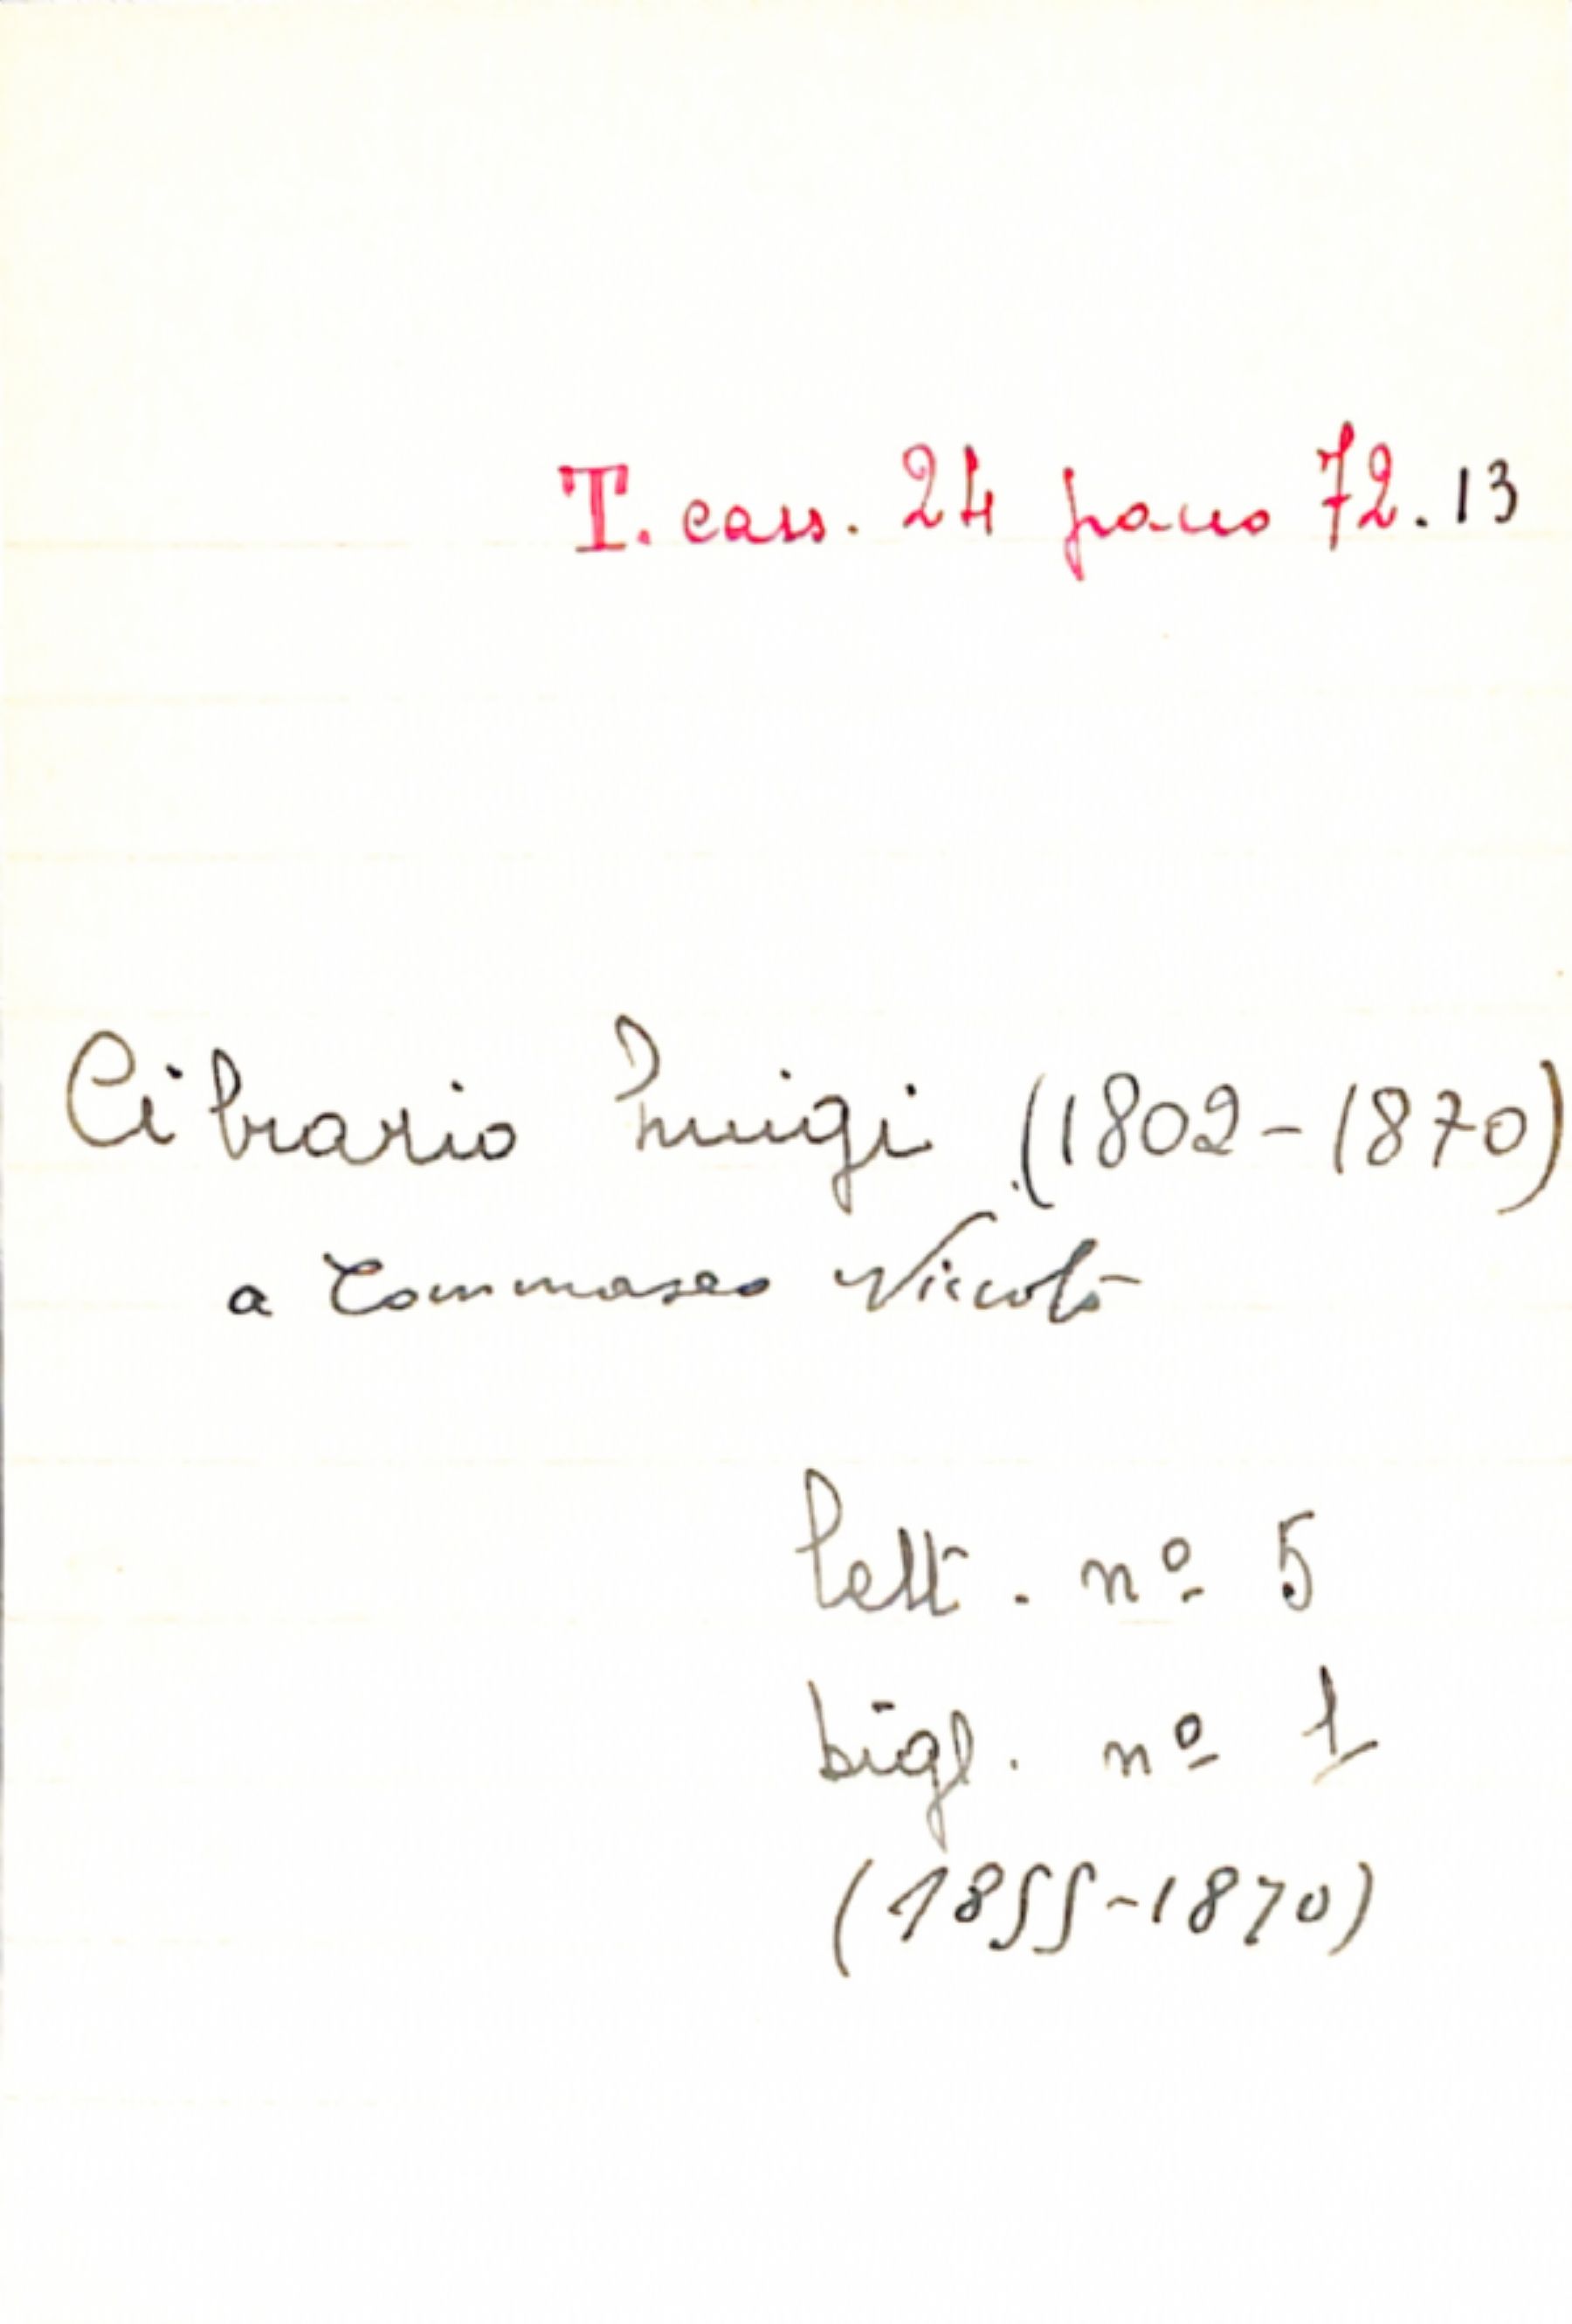 T. cass. 24 panno 72.13
Cibrario Luigi (1802-1870)
a Tommaseo Niccolò
lett. nº 5
bigl. nº 1
(1855-1870)